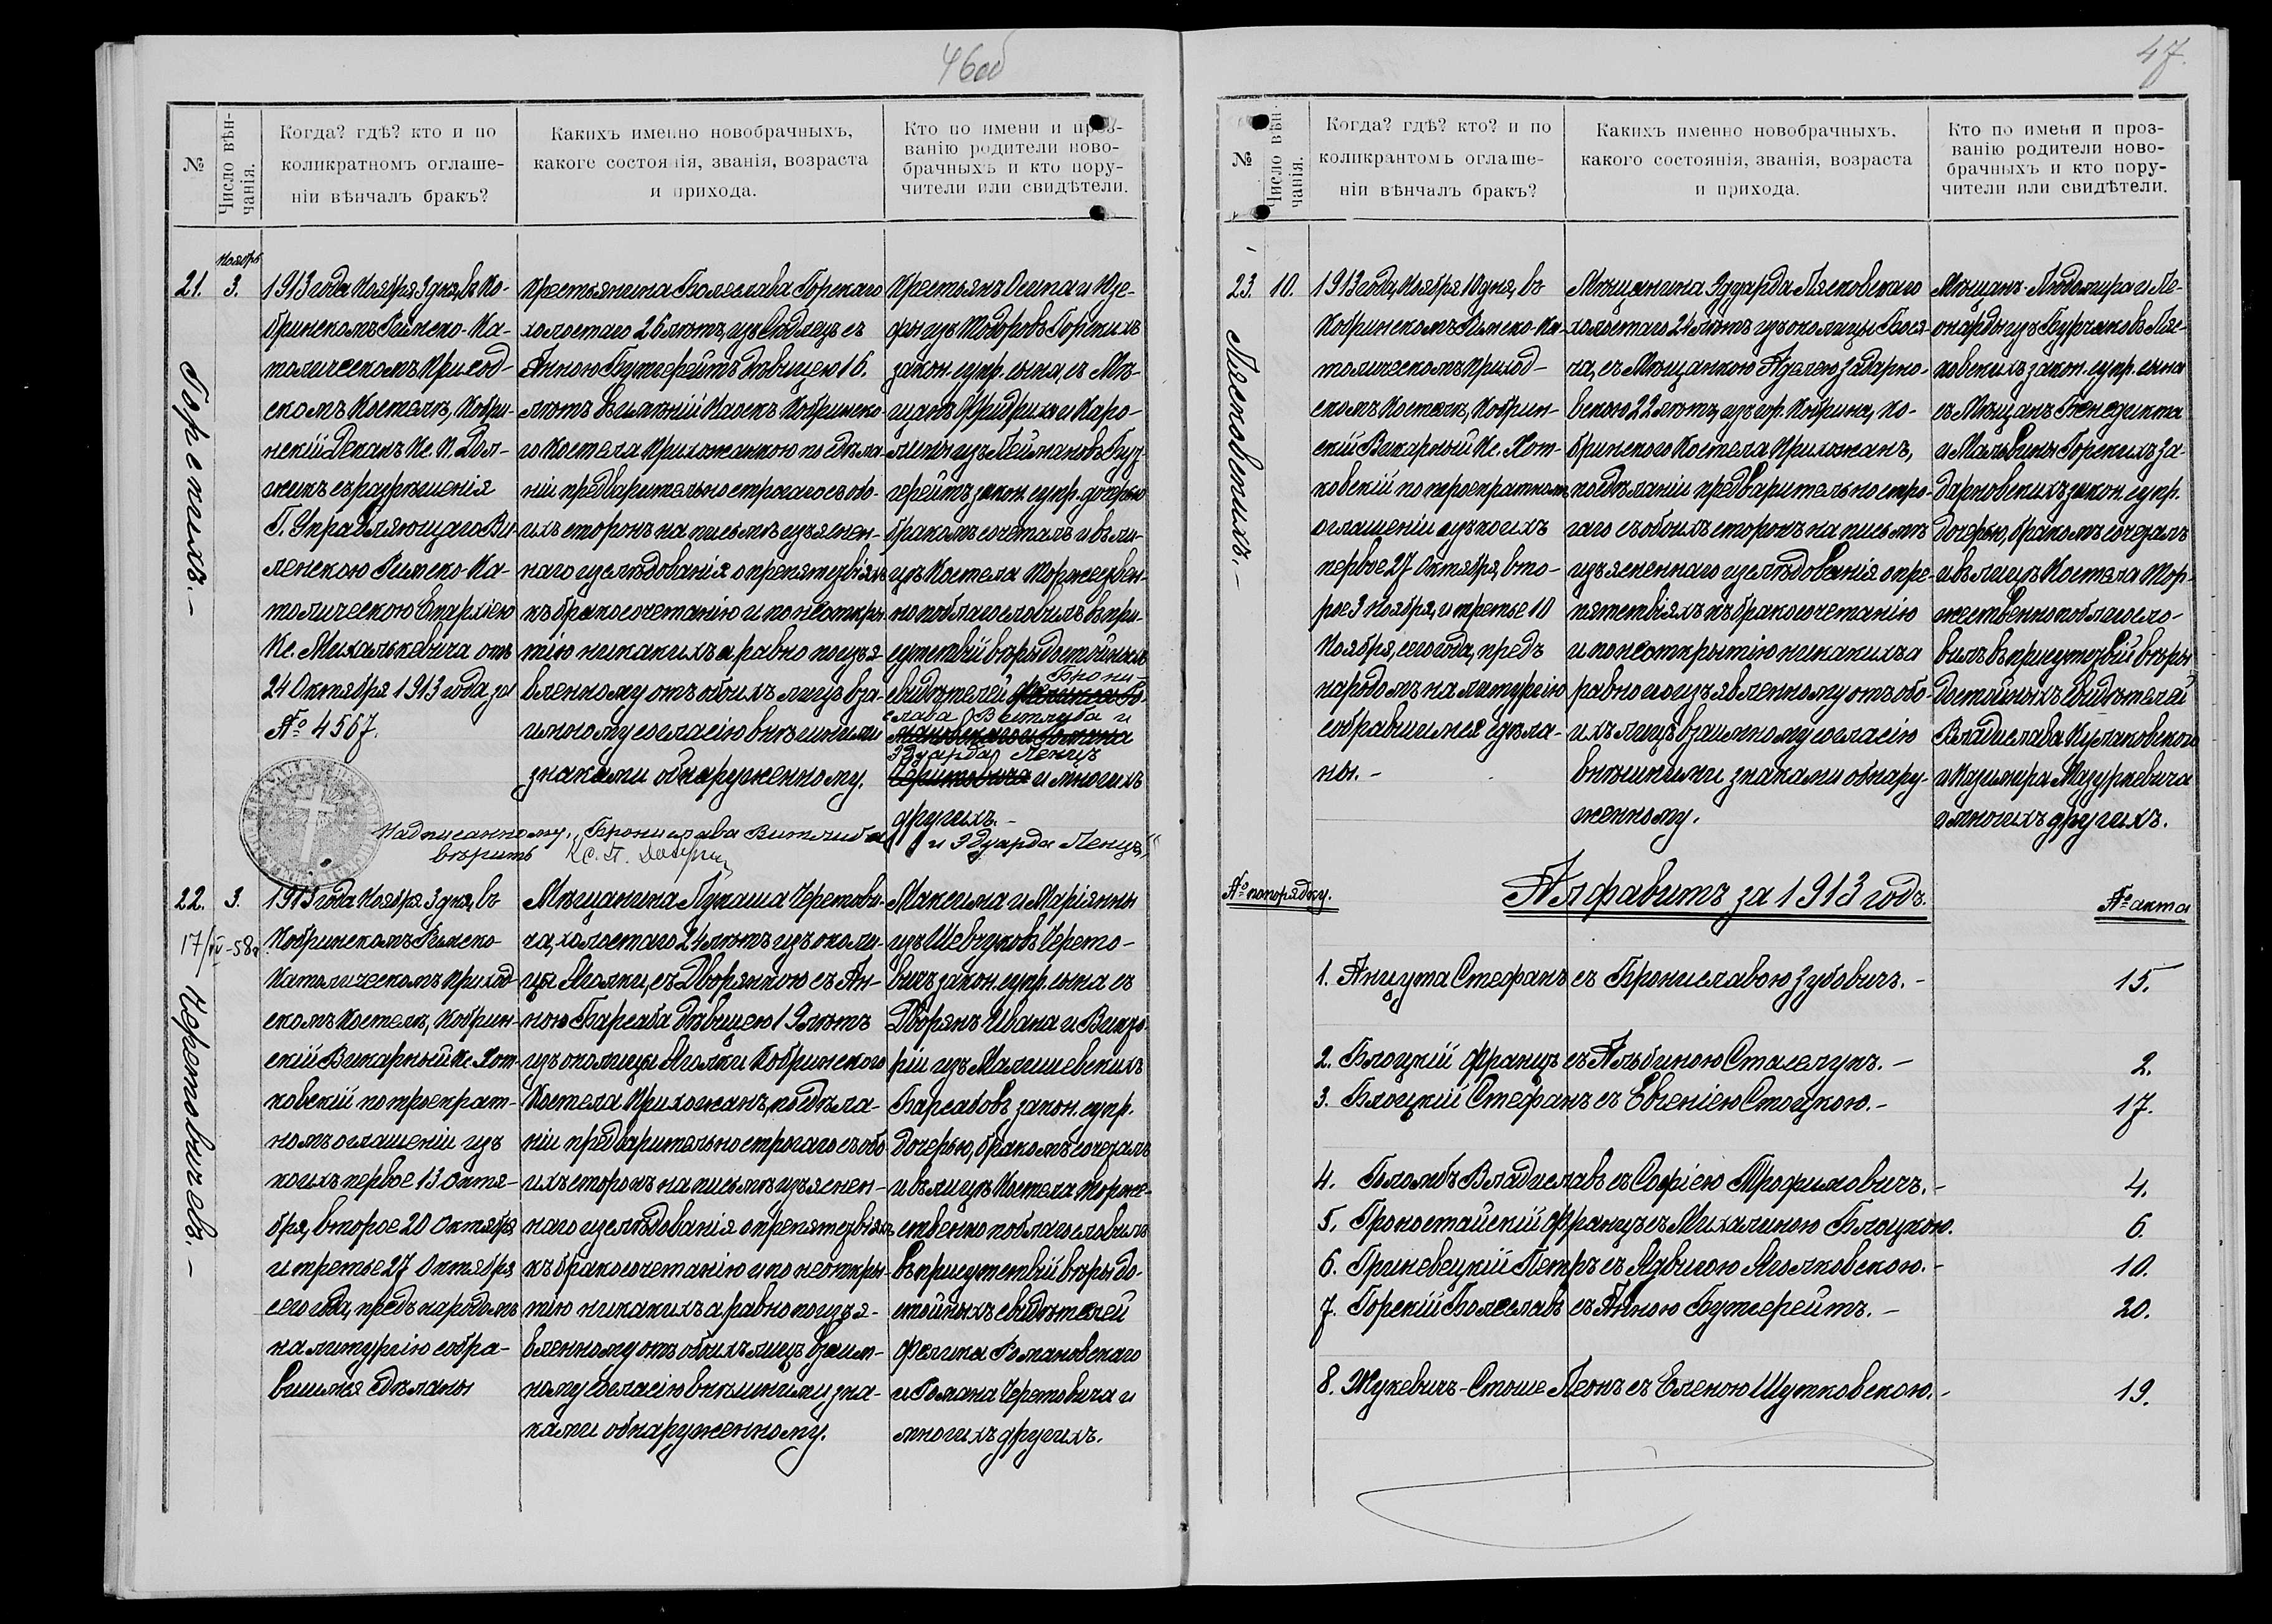 46об
№
Число вѣн-
чанія.
Когда? гдѣ? кто и по
коликратномъ оглаше-
ніи вѣнчалъ бракъ?
Какихъ именно новобрачныхъ,
какого состоянія, званія, возраста
и прихода.
Кто по имени и проз-
ванію родители ново-
брачныхъ и кто пору-
чители или свидѣтели.
Ноябрь
21. 3.
Горскихъ.-
1913 года Ноября 3 дня, въ Ко-
бринскомъ Римско-Ка-
толическомъ Приход-
скомъ Костелѣ, Кобри-
нскій Деканъ Кс. П.
съ разрѣшенія
Г. Управляющаго Ви-
ленскою Римско-Ка-
толическою Епархіею
Кс. Михалькевича отъ
24 Октября 1913 года за
№ 4567.
Крестьянина Болеслава Горскаго
холостаго 26 лѣтъ, изъ съ
Анною Бутгерейтъ дѣвицею 16.
лѣтъ Кобринска-
го Костела Прихожанкою по сдѣла-
ніи предварительно строгаго съ обо-
ихъ сторонъ на письмѣ изъяснен-
наго изслѣдованія о препятствіяхъ
къ бракосочетанію и по неоткры-
тію никакихъ а равно по изъя-
вленному отъ обоихъ лицъ вза-
имному согласію внѣшними
знаками обнаруженному.
Крестьянъ Осипа и Юзе-
фы изъ Тодоровъ Горскихъ
закон. супр. сына, съ Мѣ-
щанъ Фридриха и Каро-
лины изъ Леймановъ Бут-
герейтъ закон. супр. дочерью
бракомъ сочеталъ и въ ли-
цѣ Костела Торжествен-
но поблагословилъ въ при-
сутствіи вѣры достойныхъ
свидѣтелей Брони-
слава Витлиба и
Эдуарда Ленцъ
и многихъ
другихъ.-
Надписанному: Бронислава Витлиба
и Эдуарда Ленца"
вѣрить Кс. П.
22. 3.
17/IV-58г.
Черетовичевъ.-
1913 года Ноября 3 дня, въ
Кобринскомъ Римско-
Католическомъ Приход-
скомъ Костелѣ, Кобрин-
скій Викарный Кс. Хот-
ковскій по троекрат-
номъ оглашеніи изъ
коихъ первое 13 Октя-
бря, второе 20 Октября
и третье 27 Октября
сего года, предъ народомъ
на литургію собра-
вшимся сдѣланы
Мѣщанина Лукаша Черетови-
ча, холостаго 24 лѣтъ изъ околи-
цы Яголки, съ Дворянкою съ Ан-
ною Барсаба дѣвицею 19 лѣтъ
изъ околицы Яголки Кобринскаго
Костела Прихожанъ, по сдѣла-
ніи предварительно строгаго съ обо-
ихъ сторонъ на письмѣ изъяснен-
наго изслѣдованія о препятствіяхъ
къ бракосочетанію и по неоткры-
тію никакихъ а равно по изъя-
вленному отъ обоихъ лицъ взаим-
ному согласію внѣшними зна-
ками обнаруженному.
Максима и Маріянны
изъ Шевчуковъ Черето-
вичъ закон. супр. сына съ
Дворянъ Ивана и Викто-
ріи изъ Малишевскихъ
Барсабовъ закон. супр.
дочерью, бракомъ сочеталъ
и въ лицѣ Костела торже-
ственно поблагословилъ
въ присутствіи вѣры до-
стойныхъ свидѣтелей
Феликса Романовскаго
и Романа Черетовича и
многихъ другихъ.
47.
№
Число вѣн-
чанія.
Когда? гдѣ? кто? и по
коликрантомъ оглаше-
ніи вѣнчалъ бракъ?
Какихъ именно новобрачныхъ,
какого состоянія, званія, возраста
и прихода.
Кто по имени и проз-
ванію родители ново-
брачныхъ и кто пору-
чители или свидѣтели.
23. 10.
Лясковскихъ.-
1913 года, Ноября 10 дня, въ
Кобринскомъ Римско-Ка-
толическомъ Приход-
скомъ Костелѣ, Кобрин-
скій Викарный Кс. Хот-
ковскій по троекратномъ
оглашеніи изъ коихъ
первое 27 Октября, вто-
рое 3 Ноября, и третье 10
Ноября, сего года, предъ
народомъ на литургію
собравшимся сдѣла-
ны.-
Мѣщанина Эдуарда Лясковскаго
холостаго 24 лѣтъ изъ околицы
ча, съ Мѣщанкою Аделею Задарно-
вскою 22 лѣтъ, изъ гор. Кобрина, Ко-
бринскаго Костела Прихожанъ,
по сдѣланіи предварительно стро-
гаго съ обоихъ сторонъ на письмѣ
изъясненнаго изслѣдованія о пре-
пятствіяхъ къ бракосочетанію
и по неоткрытію никакихъ а
равно по изъявленному отъ обо-
ихъ лицъ взаимному согласію
внѣшними знаками обнару-
женному.
Мѣщанъ Людомира и Ле-
онарды изъ Ляс-
ковскихъ закон. супр. сына
съ Мѣщанъ Бенедикта
и Мальвины Горскихъ За-
дарновскихъ закон. супр.
дочерью, бракомъ сочеталъ
и въ лицѣ Костела Тор-
жественно поблагосло-
вилъ въ присутствіи вѣры
достойныхъ свидѣтелей
Владислава Кулаковскаго
и Казимира Мазуркевича
и многихъ другихъ.
№ по порядку.
Алфавитъ за 1913 годъ.
№ акта
1. Анцута Стефанъ съ Брониславою Зубовичъ.- 15.
2. Блоцкій Францъ съ Альбиною Стаселукъ.- 2.
3. Блоцкій Стефанъ съ Евгеніею Стоцкою.- 17.
4. Голомбъ Владиславъ съ Софіею Трофимовичъ.- 4.
5. Грокостайскій Францъ съ Михалиною Блоцкою. 6.
6. Гриневецкій Петръ съ Ядвигою Яголковскою.- 10.
7. Горскій Болеславъ съ Анною Бутгерейтъ.- 20.
8. Жукевичъ-Стоше Леонъ съ Еленою Шутковскою.- 19.